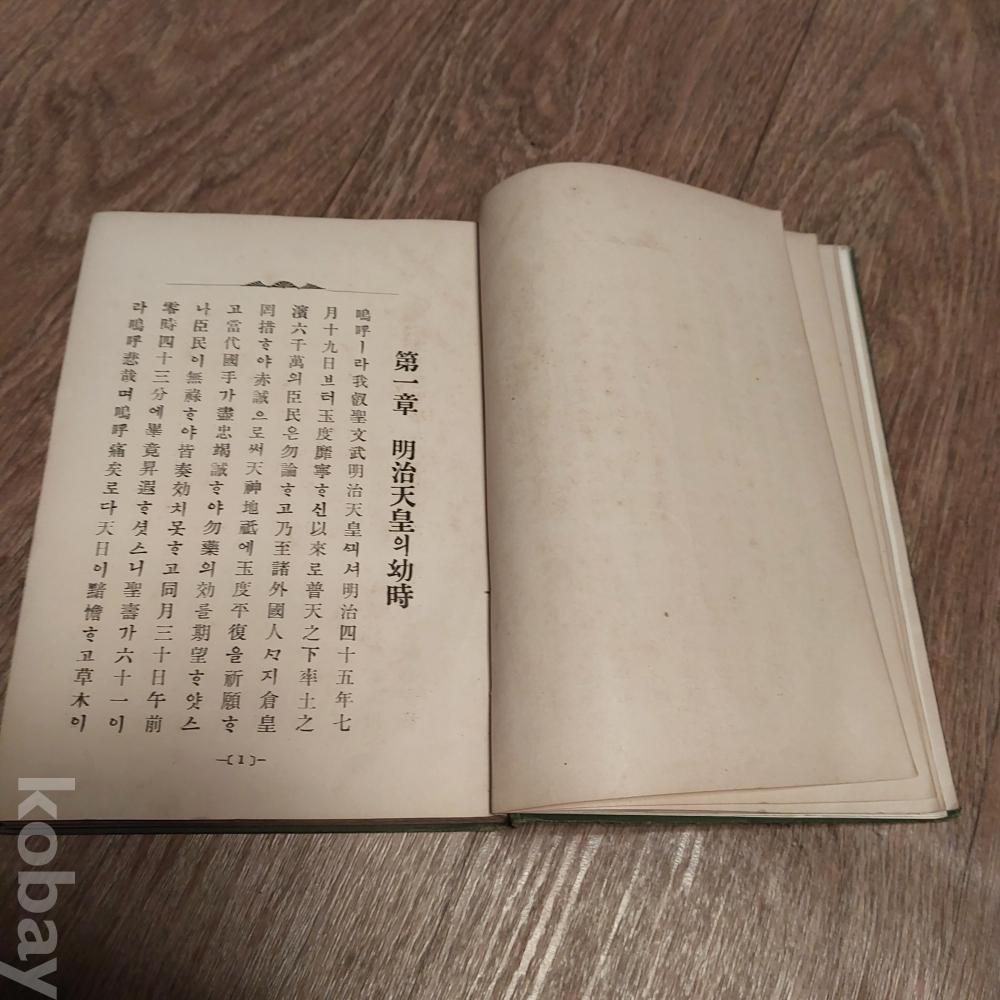 第一章 明治天皇의幼時
嗚呼ㅣ라我叡聖文武明治天皇ᄭᅴ셔明治四十五年七
月十九日브터玉度靡寧ᄒᆞ신以來로普天之下率土之
濱六千萬의臣民은勿論ᄒᆞ고乃至諸外國人ᄭᆞ지倉皇
罔措ᄒᆞ야赤誠으로써天神地祇에玉度平復을祈願ᄒᆞ
고當代國手가盡忠竭誠ᄒᆞ야勿藥의効를期望ᄒᆞ얏스
나臣民이無祿ᄒᆞ야皆奏効치못ᄒᆞ고同月三十日午前
零時四十三分에畢竟昇遐ᄒᆞ셧스니聖壽가六十一이
라嗚呼悲哉며嗚呼痛矣로다天日이黯憺ᄒᆞ고草木이
—(1)—
kobay